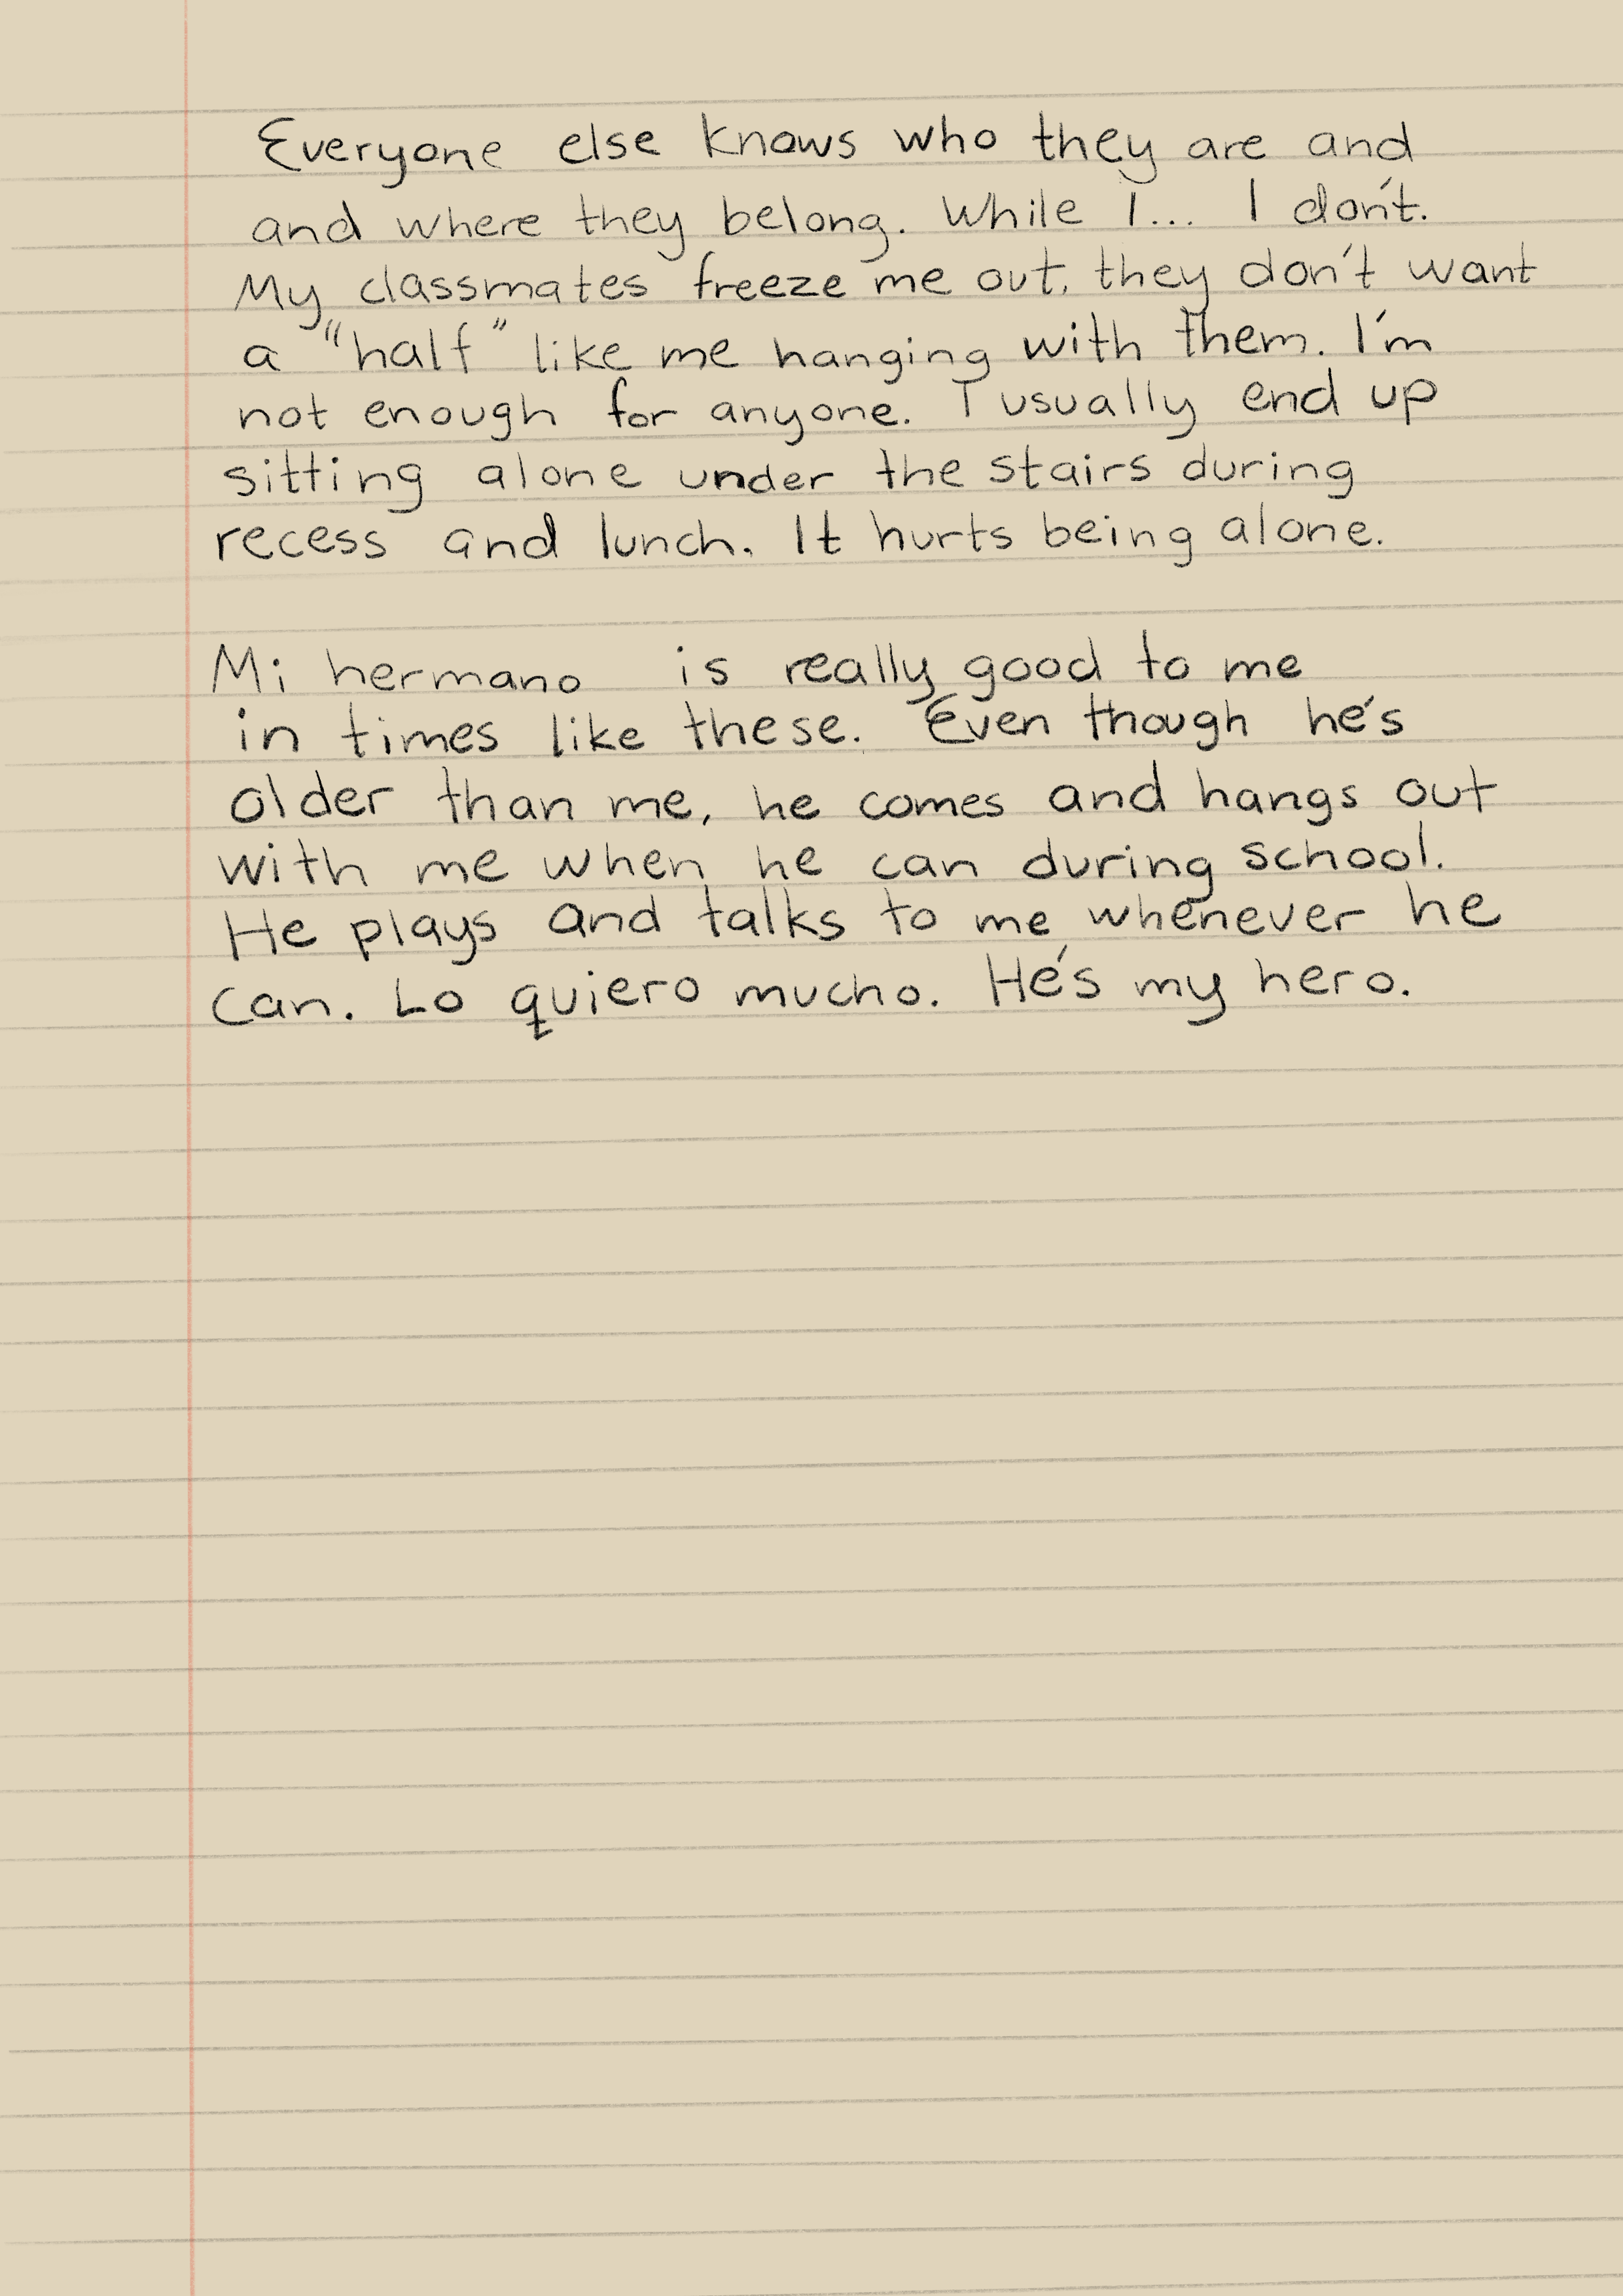 Everyone else knows who they are and
and where they belong. While I... I don't.
My classmates freeze me out, they don't want
a "half" like me hanging with them. I'm
not enough for anyone. I usually end up
sitting alone under the stairs during
recess and lunch. It hurts being alone.
Mi hermano is really good to me
in times like these. Even though he's
older than me, he comes and hangs out
with me when he can during school.
He plays and talks to me whenever he
can. Lo quiero mucho. He's my hero.